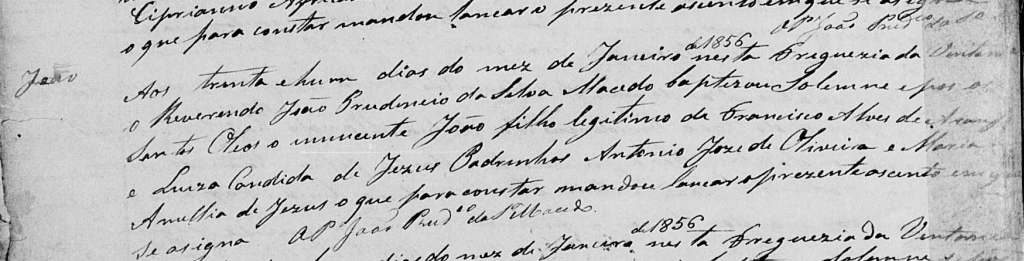 Ciprianno
o que para constar mandou lancar o prezente asento em que se asigna
O Pe João Prudco da Sa
João
Aos trinta e hum dias do mez de Janeiro de 1856 nesta Freguezia da Ventania
o Reverendo João Prudencio da Silva Macedo baptizou Solemne e pos os
Santos Oleos o innocente João filho legitimo de Francisco Alves de Araujo
e Luiza Candida de Jezus Padrinhos Antonio Joze de Oliveira e Maria
Amellia de Jezus o que para constar mandou lancar o prezente asento em que
se asigna O P João Prudco da Sa Macedo.
dias do mez de Janeiro de 1856 nesta Freguezia da Ventania
Solemne